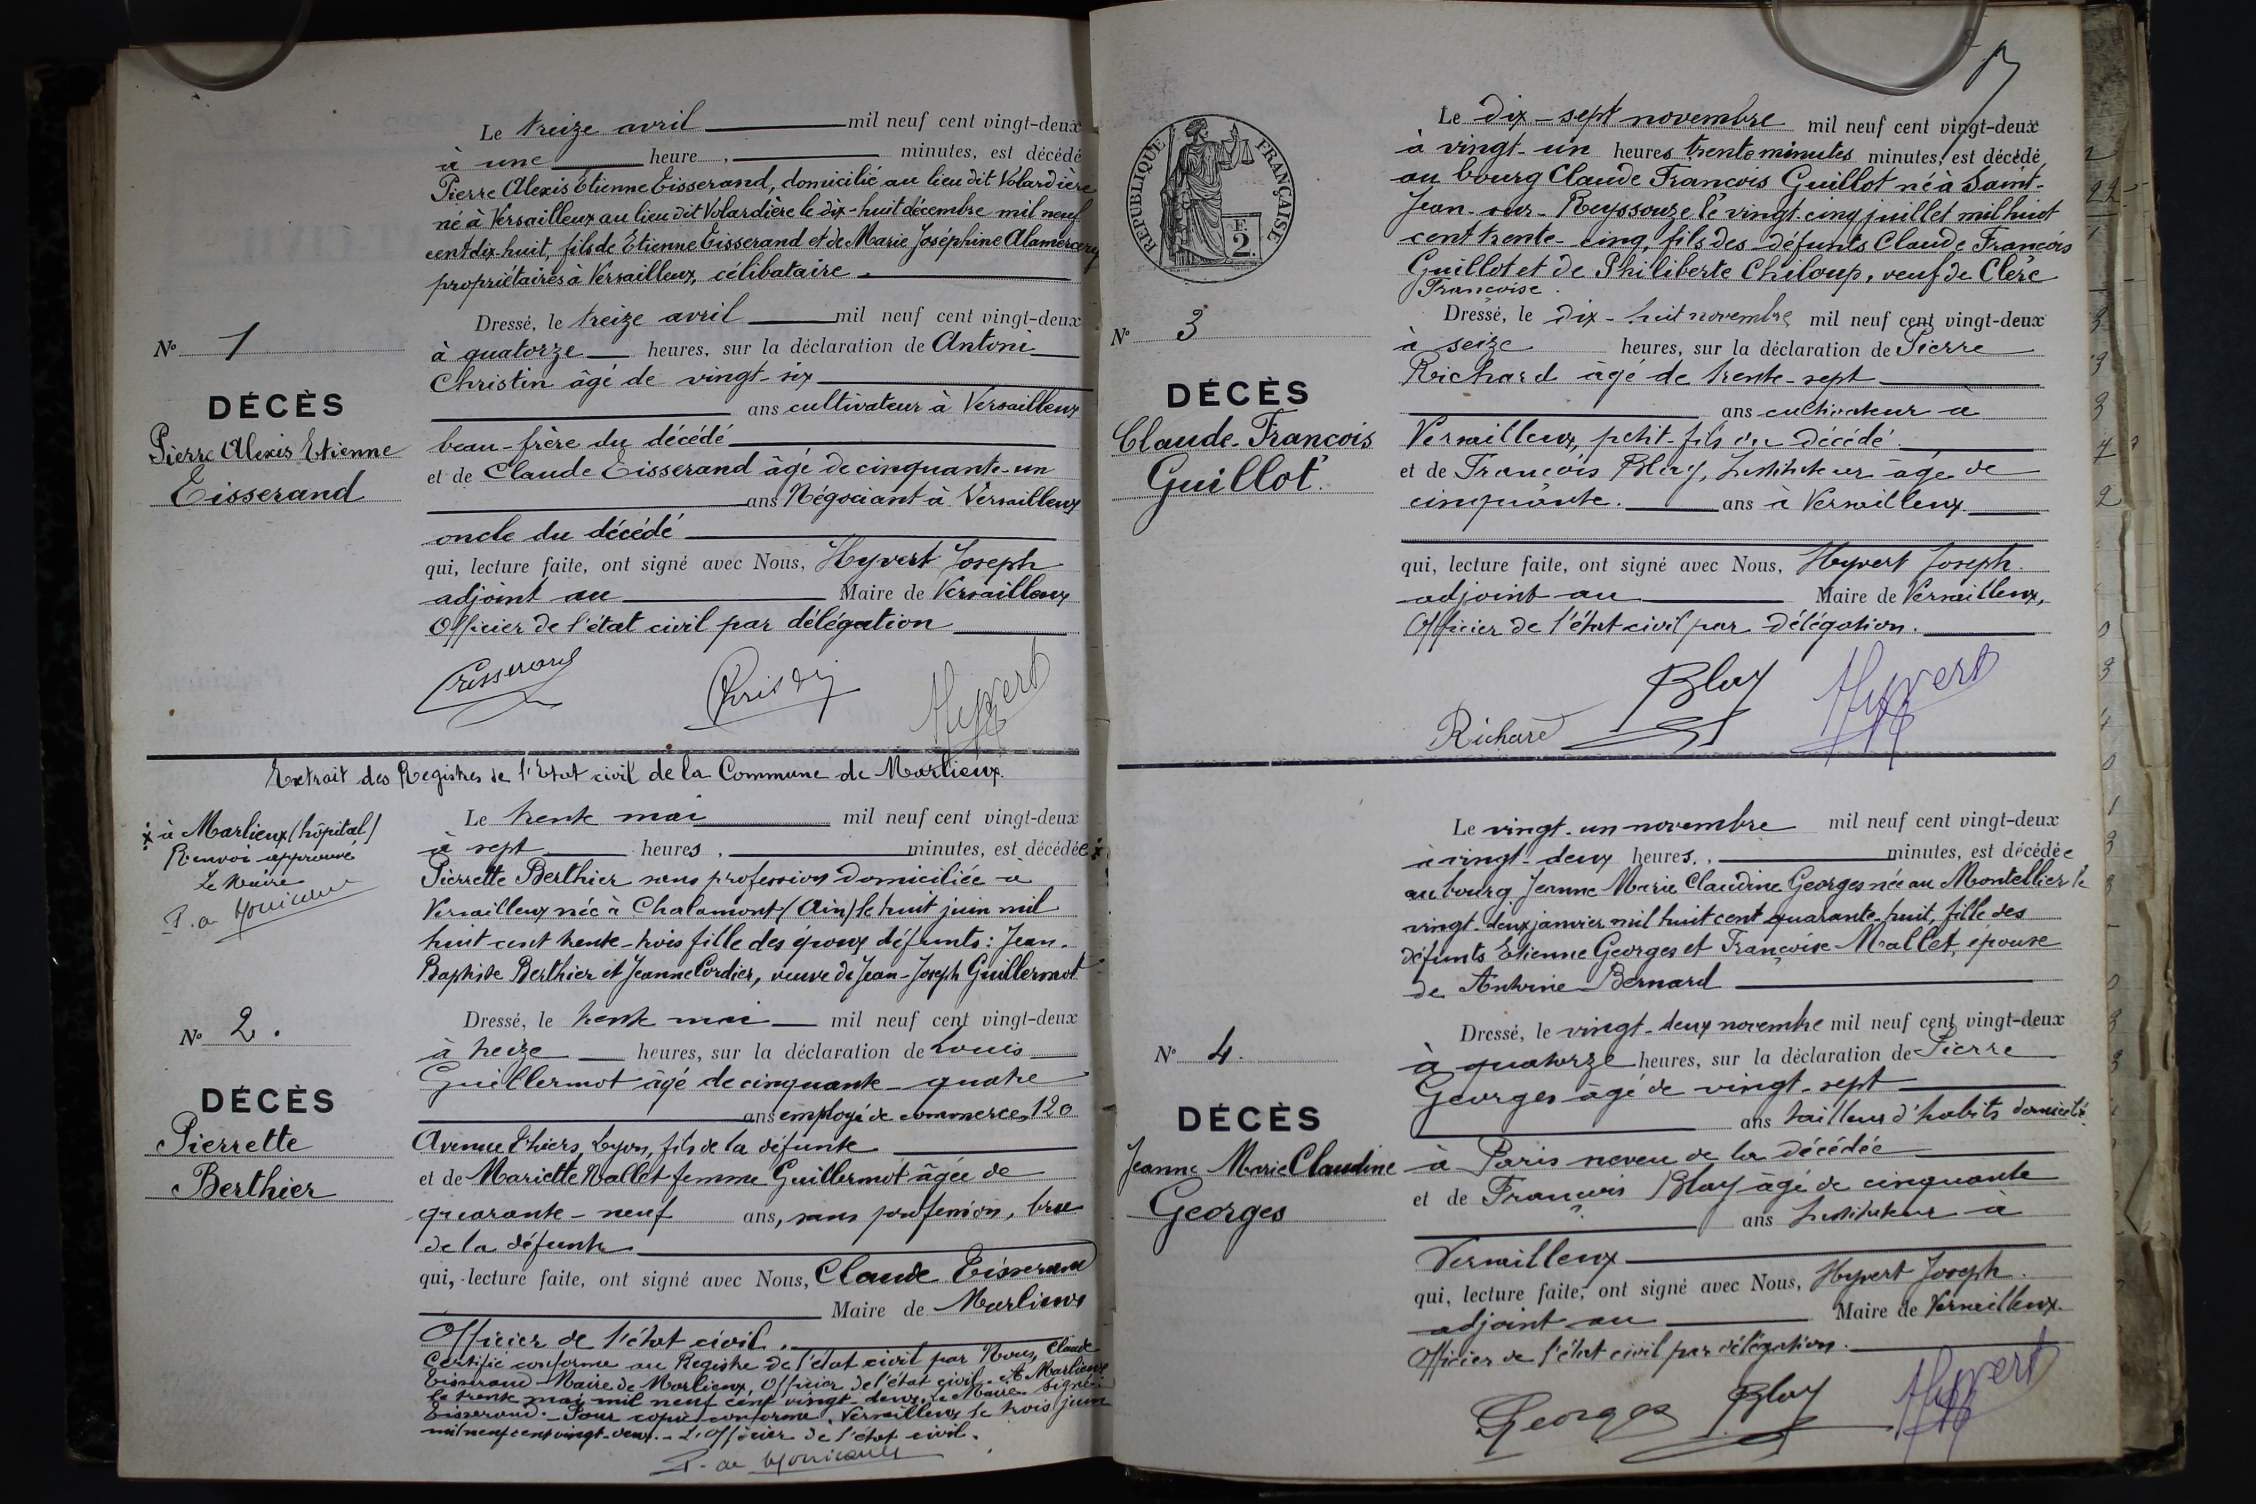 Le treize avril mil neuf cent vingt-deux
à une heure, minutes, est décédé
Pierre Alexis Etienne Eisserand, domicilié au lieu dit Volardière
né à Versailleux au lieu dit Volardière le dix-huit décembre mil neuf
cent dix-huit, fils de Etienne Eisserand et de Marie Joséphine Alamercery
propriétaires à Versailleux, célibataire.
Dressé, le treize avril mil neuf cent vingt-deux
N° 1
à quatorze heures, sur la déclaration de Antoni
Christin âgé de vingt-six
DÉCÈS
ans cultivateur à Versailleux
Pierre Alexis Etienne
Eisserand
beau-frère du décédé
et de Claude Eisserand âgé de cinquante-un
ans Négociant à Versailleux
oncle du décédé
qui, lecture faite, ont signé avec Nous, Hyvert Joseph
adjoint au Maire de Versailleux
Officier de l'état civil par délégation
Eisserand Christin Hyvert
Extrait des Registres de l'Etat civil de la Commune de Marlieux.
à Marlieux (hôpital)
Renvoi approuvé
Le Maire
Le trente mai mil neuf cent vingt-deux
à sept heures, minutes, est décédée
Pierrette Berthier sans profession domiciliée à
Versailleux née à Chalamont (Ain) le huit juin mil
huit cent trente-trois fille des époux défunts: Jean-
Baptiste Berthier et Jeanne Cordier, veuve de Jean-Joseph Guillermot
N° 2.
DÉCÈS
Pierrette
Berthier
Dressé, le trente mai mil neuf cent vingt-deux
à treize heures, sur la déclaration de Louis
Guillermot âgé de cinquante-quatre
ans employé de commerce, 120
Avenue Thiers, Lyon, fils de la défunte
et de Mariette Vallet femme Guillermot âgée de
quarante-neuf ans, sans profession, bru
de la défunte
qui, lecture faite, ont signé avec Nous, Claude Eisserand
Maire de Marlieux
Officier de l'état civil.
Certifié conforme au Registre de l'état civil par Nous, Claude
Eisserand Maire de Marlieux, Officier de l'état civil. A Marlieux
le trente mai mil neuf cent vingt-deux. Le Maire signé:
Eisserand. - Pour copie conforme. Versailleux le trois juin
mil neuf cent vingt-deux. - L'Officier de l'état civil.
RÉPUBLIQUE FRANÇAISE
E
2
Le dix-sept novembre mil neuf cent vingt-deux
à vingt-un heures trente minutes minutes, est décédé
au bourg Claude François Guillot né à Saint-
Jean-sur-Reyssouze le vingt-cinq juillet mil huit
cent trente-cinq, fils des défunts Claude François
Guillot et de Philiberte Chiloup, veuf de Clère
Françoise.
N° 3
DÉCÈS
Claude-François
Guillot.
Dressé, le dix-huit novembre mil neuf cent vingt-deux
à seize heures, sur la déclaration de Pierre
Richard âgé de trente-sept
ans cultivateur à
Versailleux, petit-fils du décédé
et de François Blay, Instituteur âgé de
cinquante. ans à Versailleux
qui, lecture faite, ont signé avec Nous, Hyvert Joseph.
adjoint au Maire de Versailleux,
Officier de l'état civil par délégation.
Richard Blay Hyvert
Le vingt-un novembre mil neuf cent vingt-deux
à vingt-deux heures, minutes, est décédée
au bourg Jeanne Marie Claudine Georges née au Montellier le
vingt-deux janvier mil huit cent quarante-huit, fille des
défunts Etienne Georges et Françoise Mallet, épouse
de Antoine Bernard
N° 4.
DÉCÈS
Jeanne Marie Claudine
Georges
Dressé, le vingt-deux novembre mil neuf cent vingt-deux
à quatorze heures, sur la déclaration de Pierre
Georges âgé de vingt-sept
ans tailleur d'habits domicilié
à Paris neveu de la décédée
et de François Blay âgé de cinquante
ans Instituteur à
Versailleux
qui, lecture faite, ont signé avec Nous, Hyvert Joseph.
adjoint au Maire de Versailleux.
Officier de l'état civil par délégation.
Georges Blay Hyvert